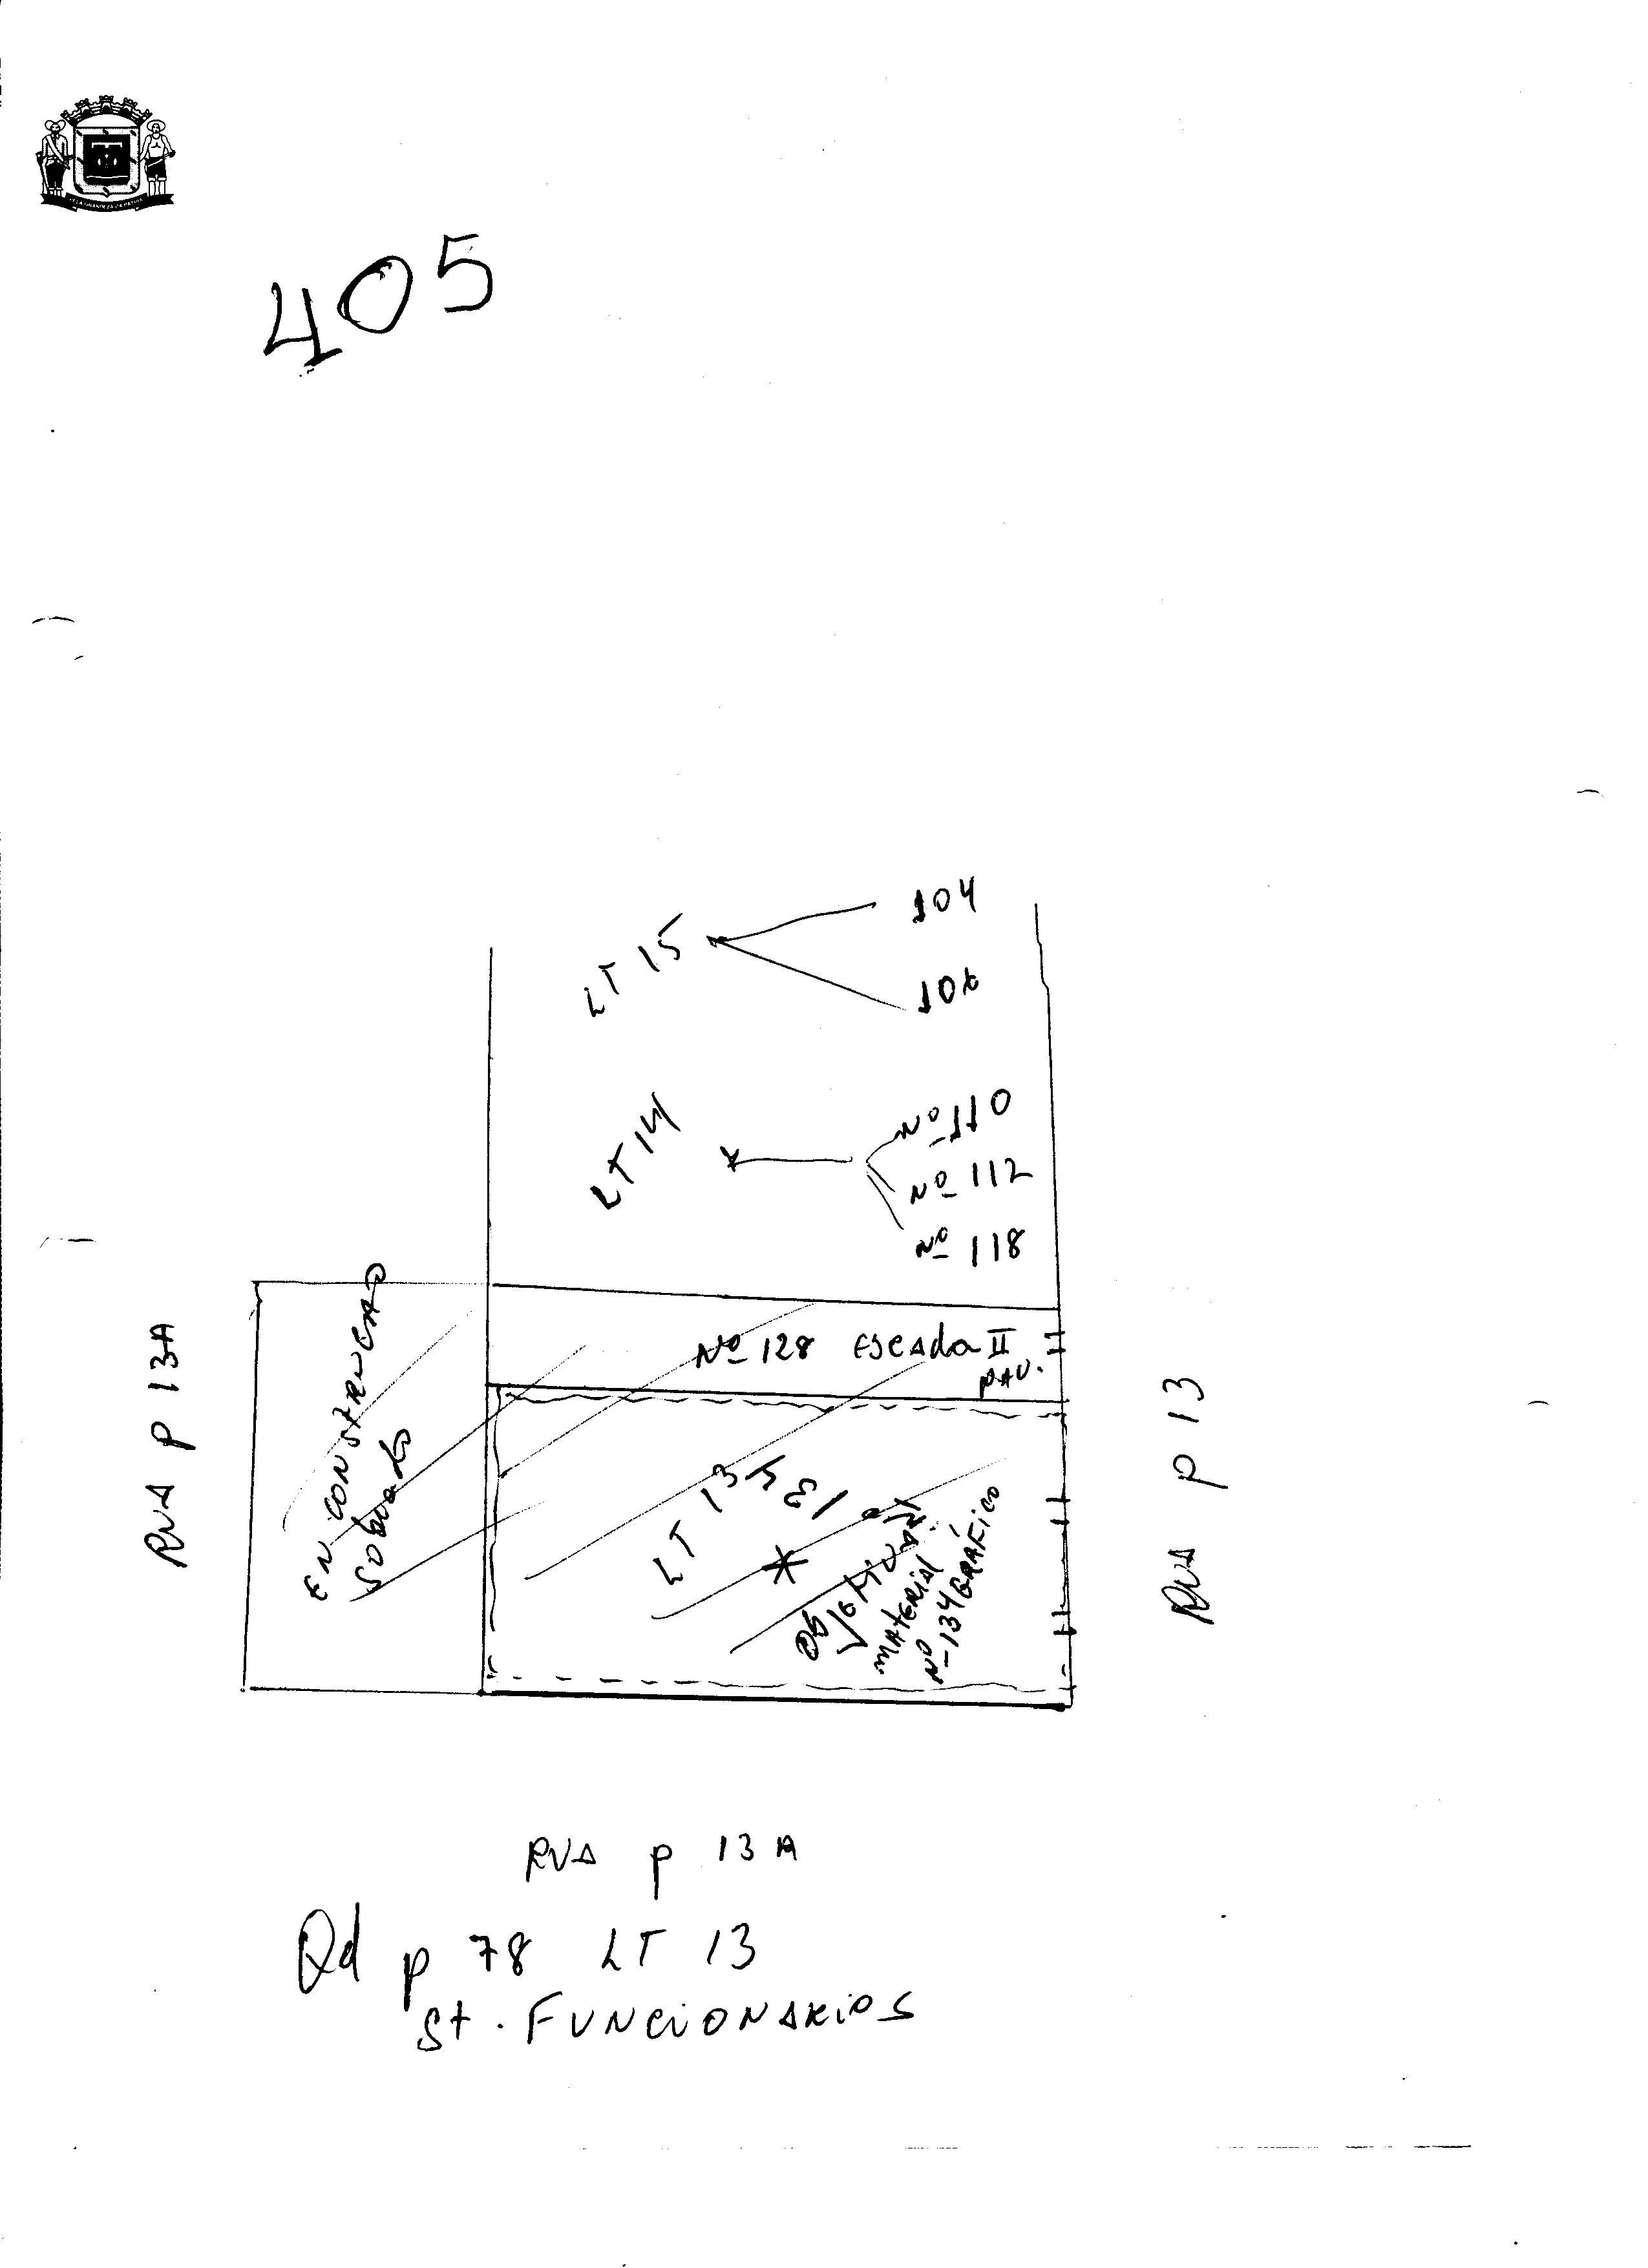 405
LT 15
104
LT 14
Nº 110
Nº 112
Nº 118
EN CONSTRUCAO
Sobrado
Nº 128 Escada II
PAV.
LT 13
MATERIAL
Nº 134 GRÁFICO
RUA P 13A
RUA P 13
RUA P 13A
Qd P 78 LT 13
St. FUNCIONARIOS